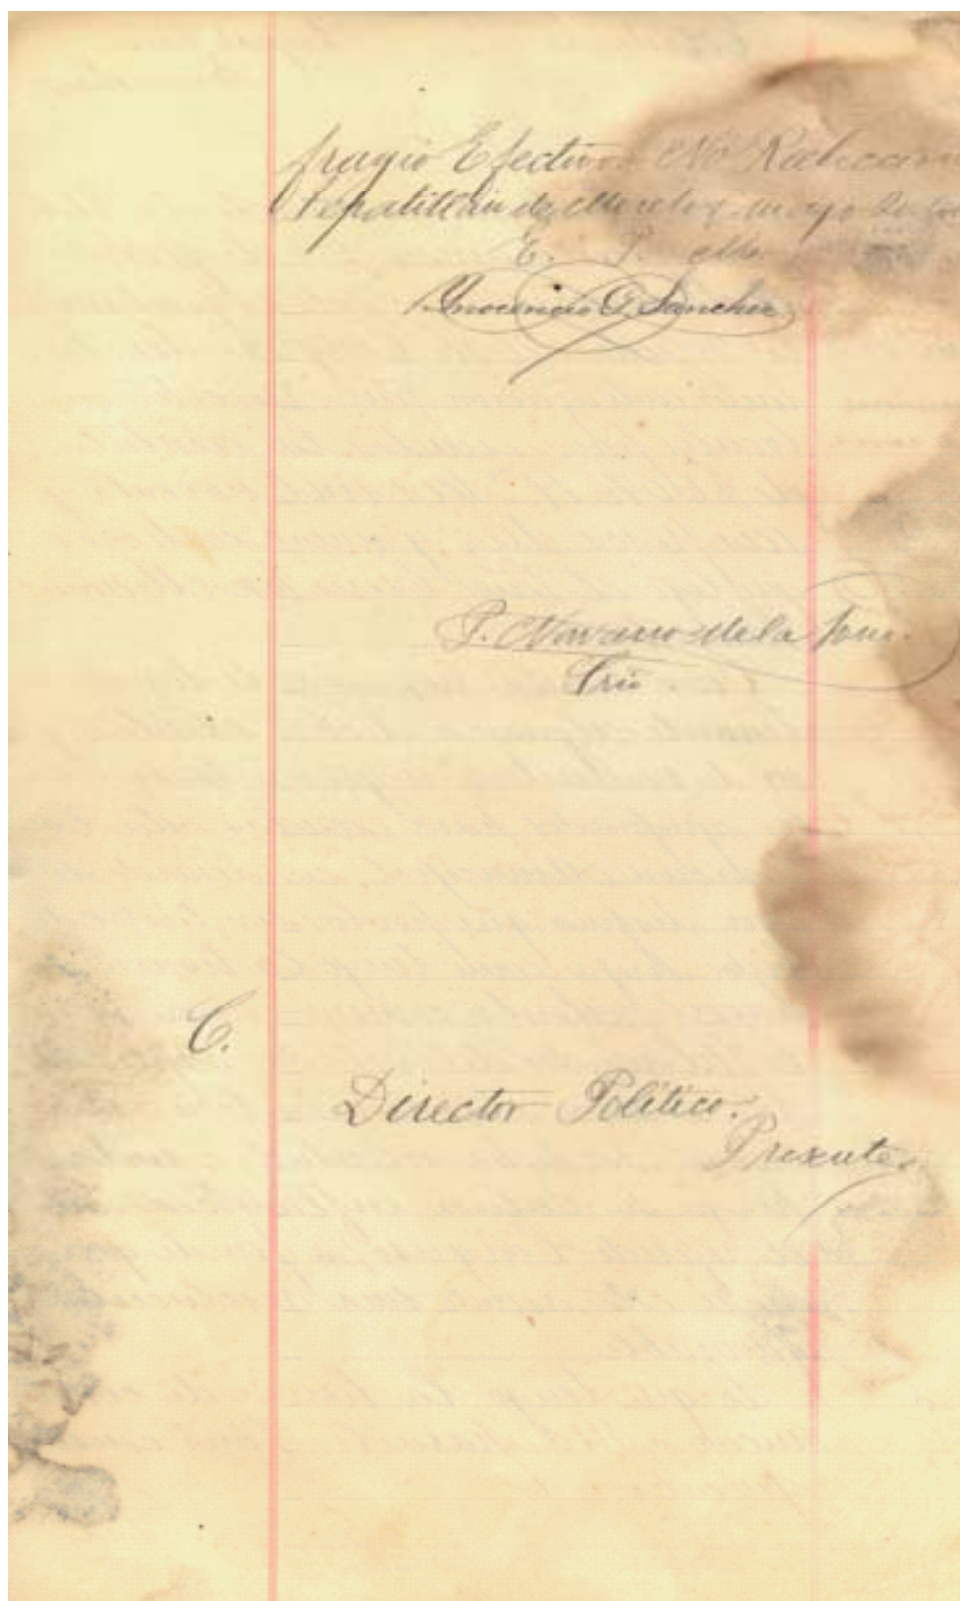 fragio Efectivo. No Reeleccion
Tepatitlán de Morelos, mayo
E. P.
Inocencio G. Sanchez
P. Navarro de la
Srio
C.
Director Político.
Presente.